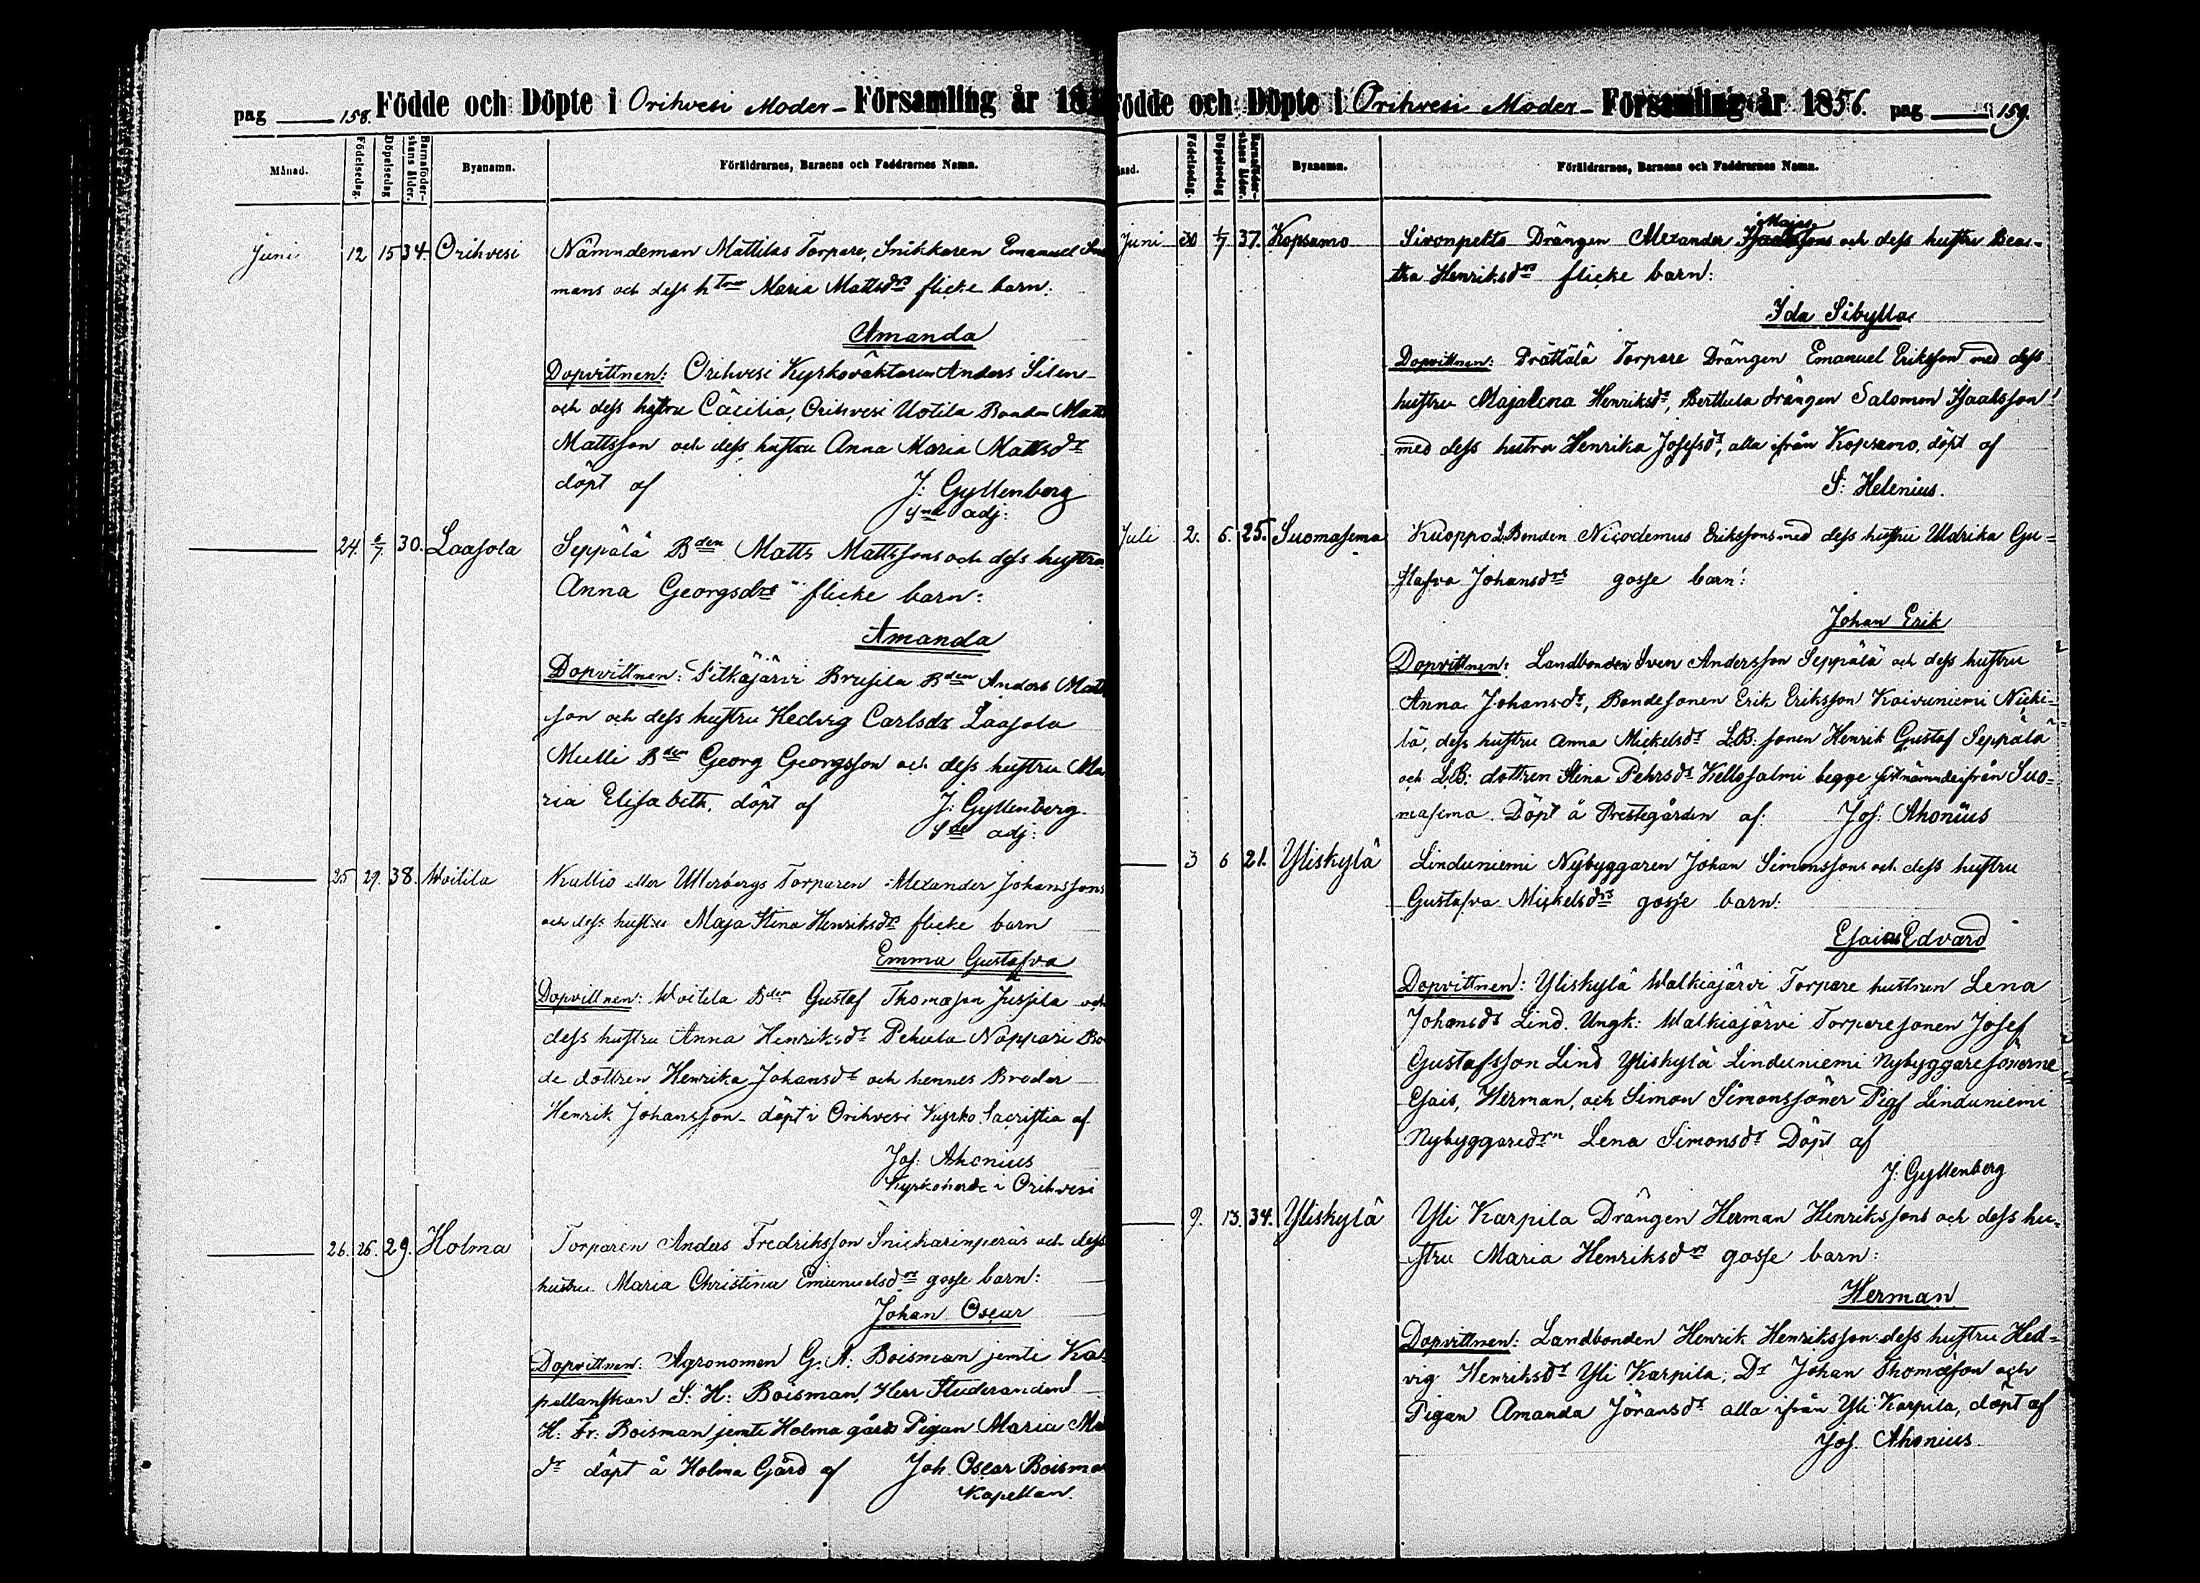 pag 158. Födde och Döpte i Orihvesi Moder- Församling år 18
Månad. Födelsedag. Döpelsedag Barnaföder-skans ålder. Byanamn. Föräldrarnes, Barnens och Faddrarnes Namn.
Juni 12 15 34 Orihvesi Nämndeman Mattilas Torpare, Snikkaren Emanuel
mans och dess htrus Maria Mattsdrs flicke barn:
Amanda
Dopvittnen: Orihvesi Kyrkoväktaren Anders Silen
och dess hustru Cäcilia, Orihvesi Uotila Bonden Matts
Mattsson och dess hustru Anna Maria Mattsdr
döpt af J: Gyllenberg
adj:
24. 6/7 30. Laasola Seppälä Bden Matts Mattssons och dess hustru
Anna Georgsdrs flicke barn:
Amanda
Dopvittnen: Pitkäjärvi Brusila Bden Anders Matts
son och dess hustru Hedvig Carlsdr Laasola
Mulli Bden Georg Georgsson och dess hustru Ma
ria Elisabeth, döpt af J: Gyllenberg
adj:
25 29. 38. Woitila Kallio eller Ullerbergs Torparen Alexander Johanssons
och dess hustru Maja Stina Henriksdrs flicke barn
Emma Gustafva
Dopvittnen: Woitila Bden Gustaf Thomasson Jussila och
dess hustru Anna Henriksdr Pehula Nappari Bo
de dottren Henrika Johansdr och hennes Broder
Henrik Johansson döpt i Orihvesi Kyrko Sacristia af
Jos. Ahonius
Kyrkoherde i Orihvesi
26. 26. 29. Holma Torparen Anders Fredriksson Snickarinperäs och dess
hustru Maria Christina Emanuelsdrs gosse barn:
Johan Oscar
Dopvittnen: Agronomen G. A: Boisman jemte Ka-
pellanskan S: H: Boisman, Herr Studeranden
H: Fr: Boisman jemte Holma gårds Pigan Maria
dr döpt å Holma Gård af Joh. Oscar Boisman
Kapellan.
Födde och Döpte i Orihvesi Moder- Församling år 1856. pag 159.
Födelsedag. Döpelsedag Barnaföder-skans ålder. Byanamn. Föräldrarnes, Barnens och Faddrarnes Namn.
Juni 30 6/7 37. Kopsamo Sironpelto Drängen Alexander Isaakssons och dess hustru Bea-
tha Henriksdrs flicke barn:
Ida Sibylla
Dopvittnen: Prättälä Torpare Drängen Emanuel Eriksson med dess
hustru Majalena Henriksdr, Berttula drängen Salomon Isaaksson
med dess hustru Henrika Josefsdr, alla ifrån Kopsamo, döpt af
S: Helenius.
Juli 2. 6. 25. Suomasema Kuoppo L.Bonden Nicodemus Erikssons med dess hustru Uldrika Gu-
stafva Johansdrs gosse barn:
Johan Erik
Dopvittnen: Landbonden Sven Andersson Seppälä och dess hustru
Anna Johansdr, Bondesonen Erik Eriksson Koivuniemi
lä, dess hustru Anna Mickelsdr L.B: sonen Henrik Gustaf Seppälä
och L.B: dottren Stina Pehrsdr Kellosalmi begge sistnämnde ifrån Suo-
masema. Döpt å Prestegården af: Jos. Ahonius
3 6 21. Yliskylä Linduniemi Nybyggaren Johan Simonssons och dess hustru
Gustafva Mickelsdrs gosse barn:
Esaias Edvard
Dopvittnen: Yliskylä Walkiajärvi Torpare hustrun Lena
Johansdr Lind. Ungk: Walkiajärvi Torparesonen Josef
Gustafsson Lind Yliskylä Linduniemi Nybyggaresönerne
Esais, Herman, och Simon Simonssöner Pigs Linduniemi
Nybyggaredrn Lena Simonsdr Döpt af
J. Gyllenberg
9. 13. 34. Yliskylä Yli Karpila Drängen Herman Henrikssons och dess hu-
stru Maria Henriksdrs gosse barn:
Herman
Dopvittnen: Landbonden Henrik Henriksson dess hustru Hed-
vig Henriksdr Yli Karpila, Dr Johan Thomasson och
Pigan Amanda Jöransdr alla ifrån Yli Karpila, döpt af
Jos. Ahonius.